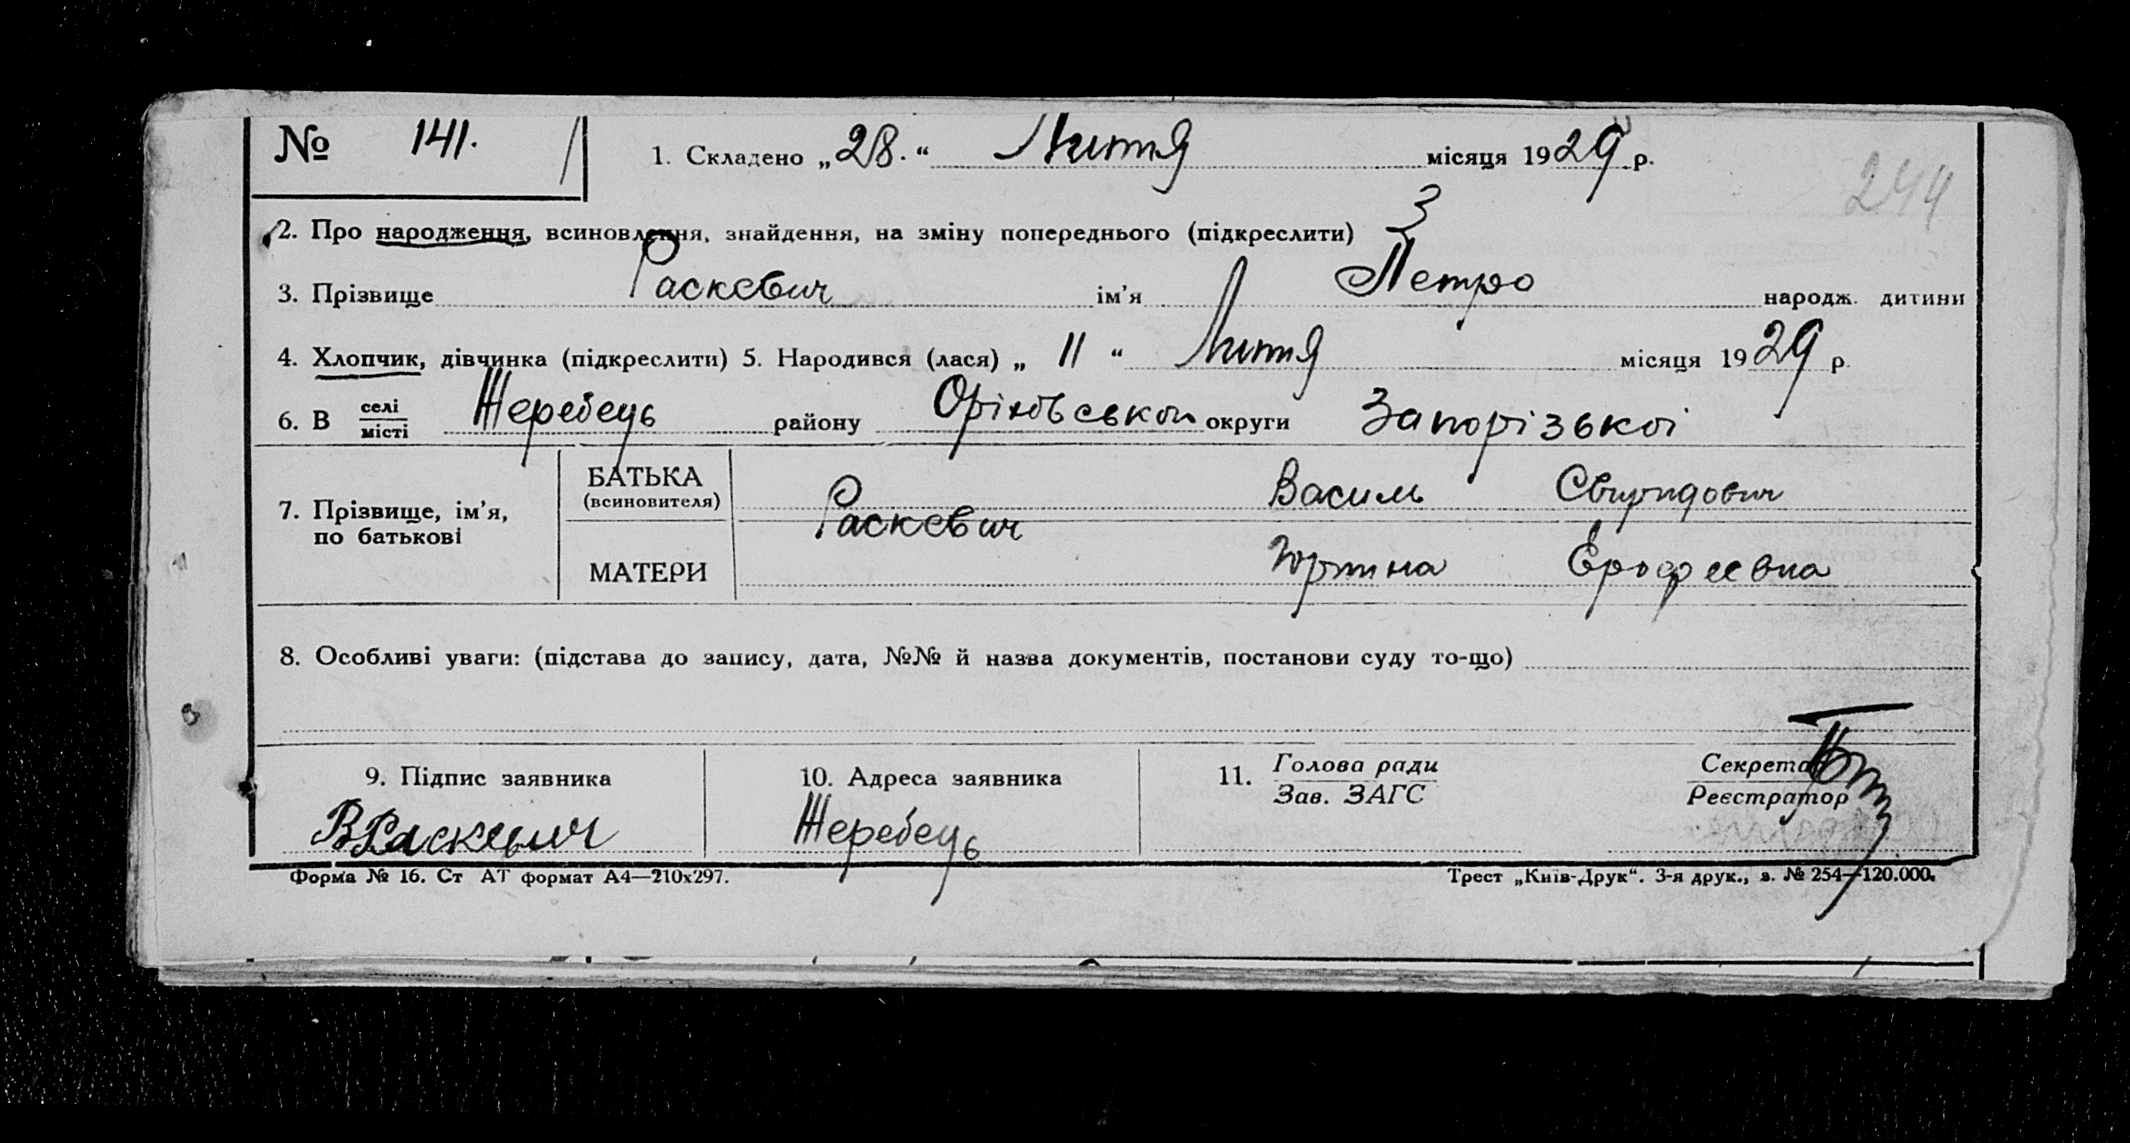 № 141. 1. Складено „28.“ Лютня місяця 1929 р.
244
2. Про народження, всиновлення, знайдення, на зміну попереднього (підкреслити) 3
3. Прізвище Раскевич ім'я Петро народж. дитини
4. Хлопчик, дівчинка (підкреслити) 5. Народився (лася) „11“ Лютня місяця 1929 р.
6. В селі/місті Жеребець району Оріхівської округи Запорізької
7. Прізвище, ім'я, по батькові
БАТЬКА (всиновителя) Раскевич Василь Свиридович
МАТЕРИ Юртина Ерофеевна
8. Особливі уваги: (підстава до запису, дата, №№ й назва документів, постанови суду то-що)
9. Підпис заявника 10. Адреса заявника 11. Голова ради Секретар
Зав. ЗАГС Реєстратор
ВРаскевич Жеребець
Форма № 16. Ст АТ формат А4—210х297. Трест „Київ-Друк“. 3-я друк., з. № 254—120.000.